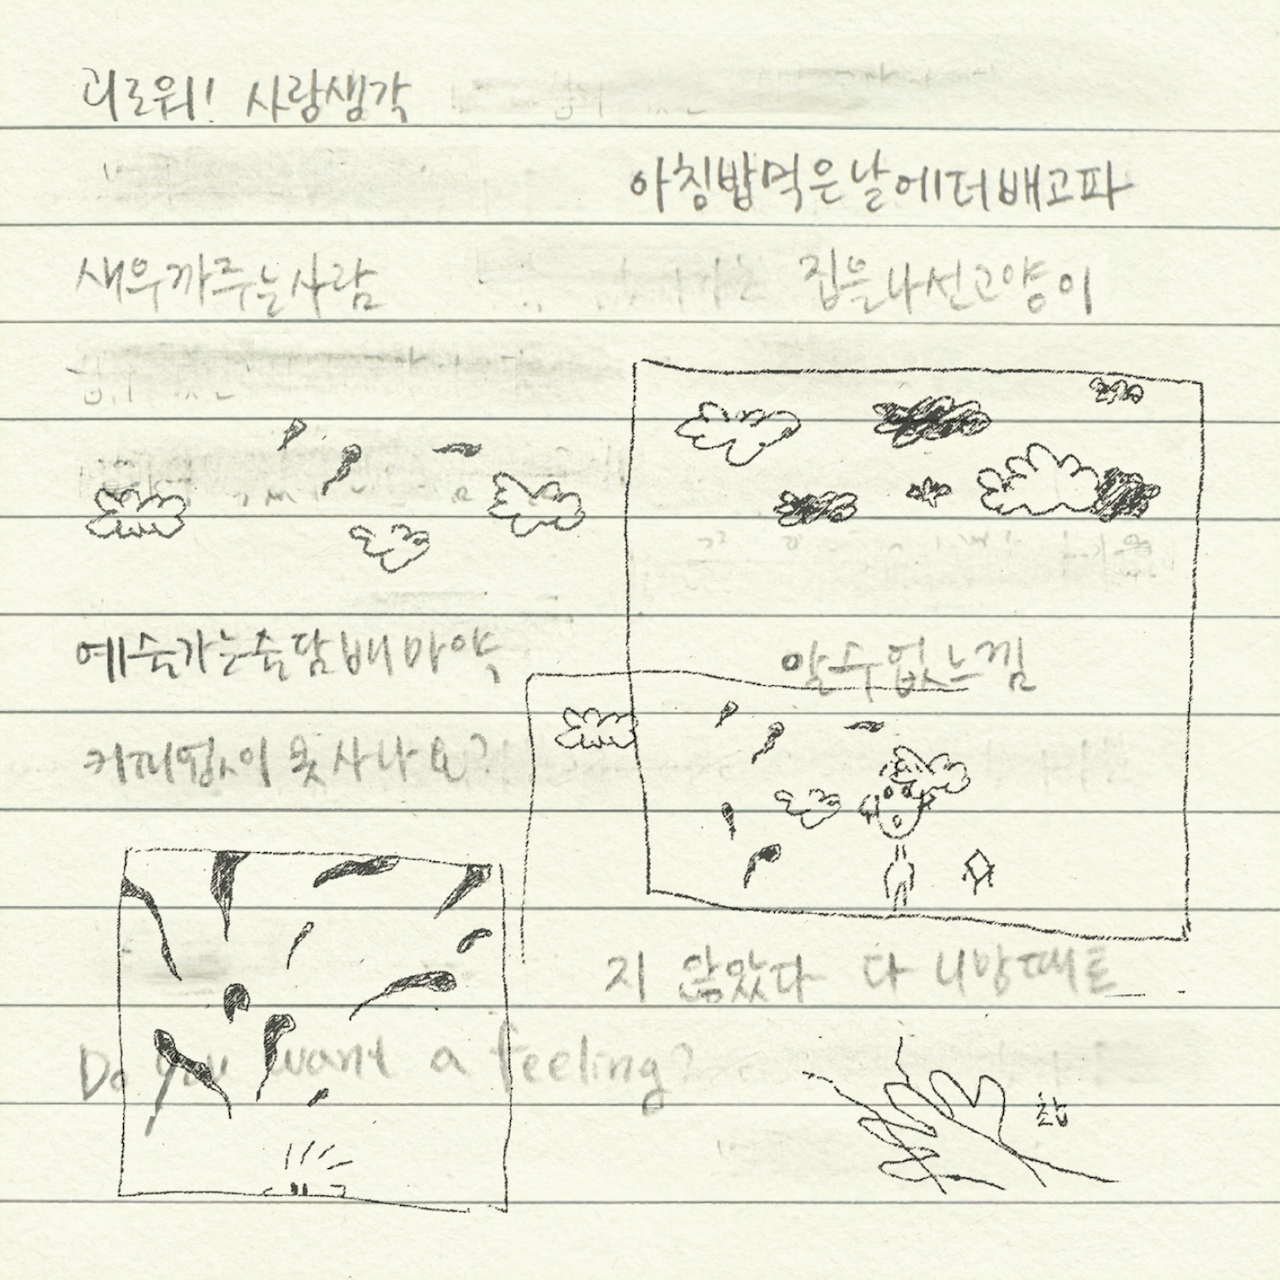 괴로워! 사랑생각
아침밥먹은날에더배고파
새우까주는사람
집을나선고양이
예술가는술담배마약
알수없느낌
커피없이못사나요?
지 않았다 다 니맘때트
Do you want a feeling?
찹